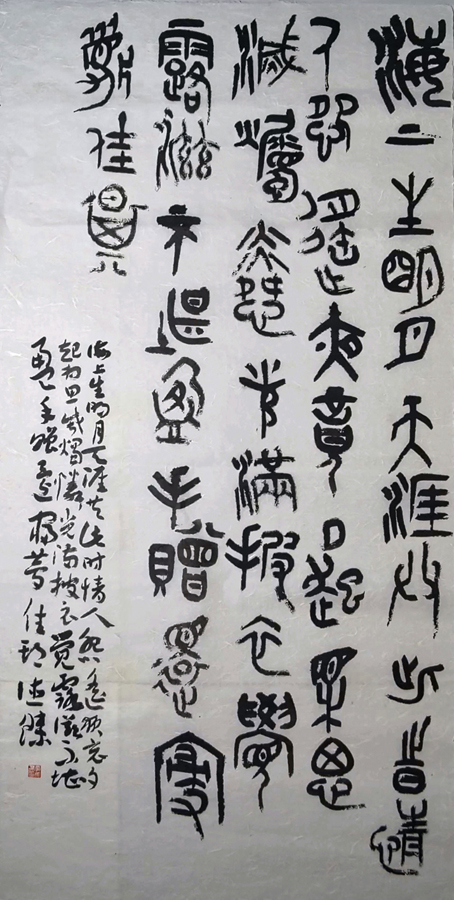 海上生明月天涯共此時情
人怨遙夜竟夕起相思
滅燭憐光滿披衣覺
露滋不堪盈手贈還寢
夢佳期
海上生明月天涯共此时情人怨遥夜竟夕
起相思滅燭憐光满披衣覺露滋不堪
盈手贈還寢夢佳期